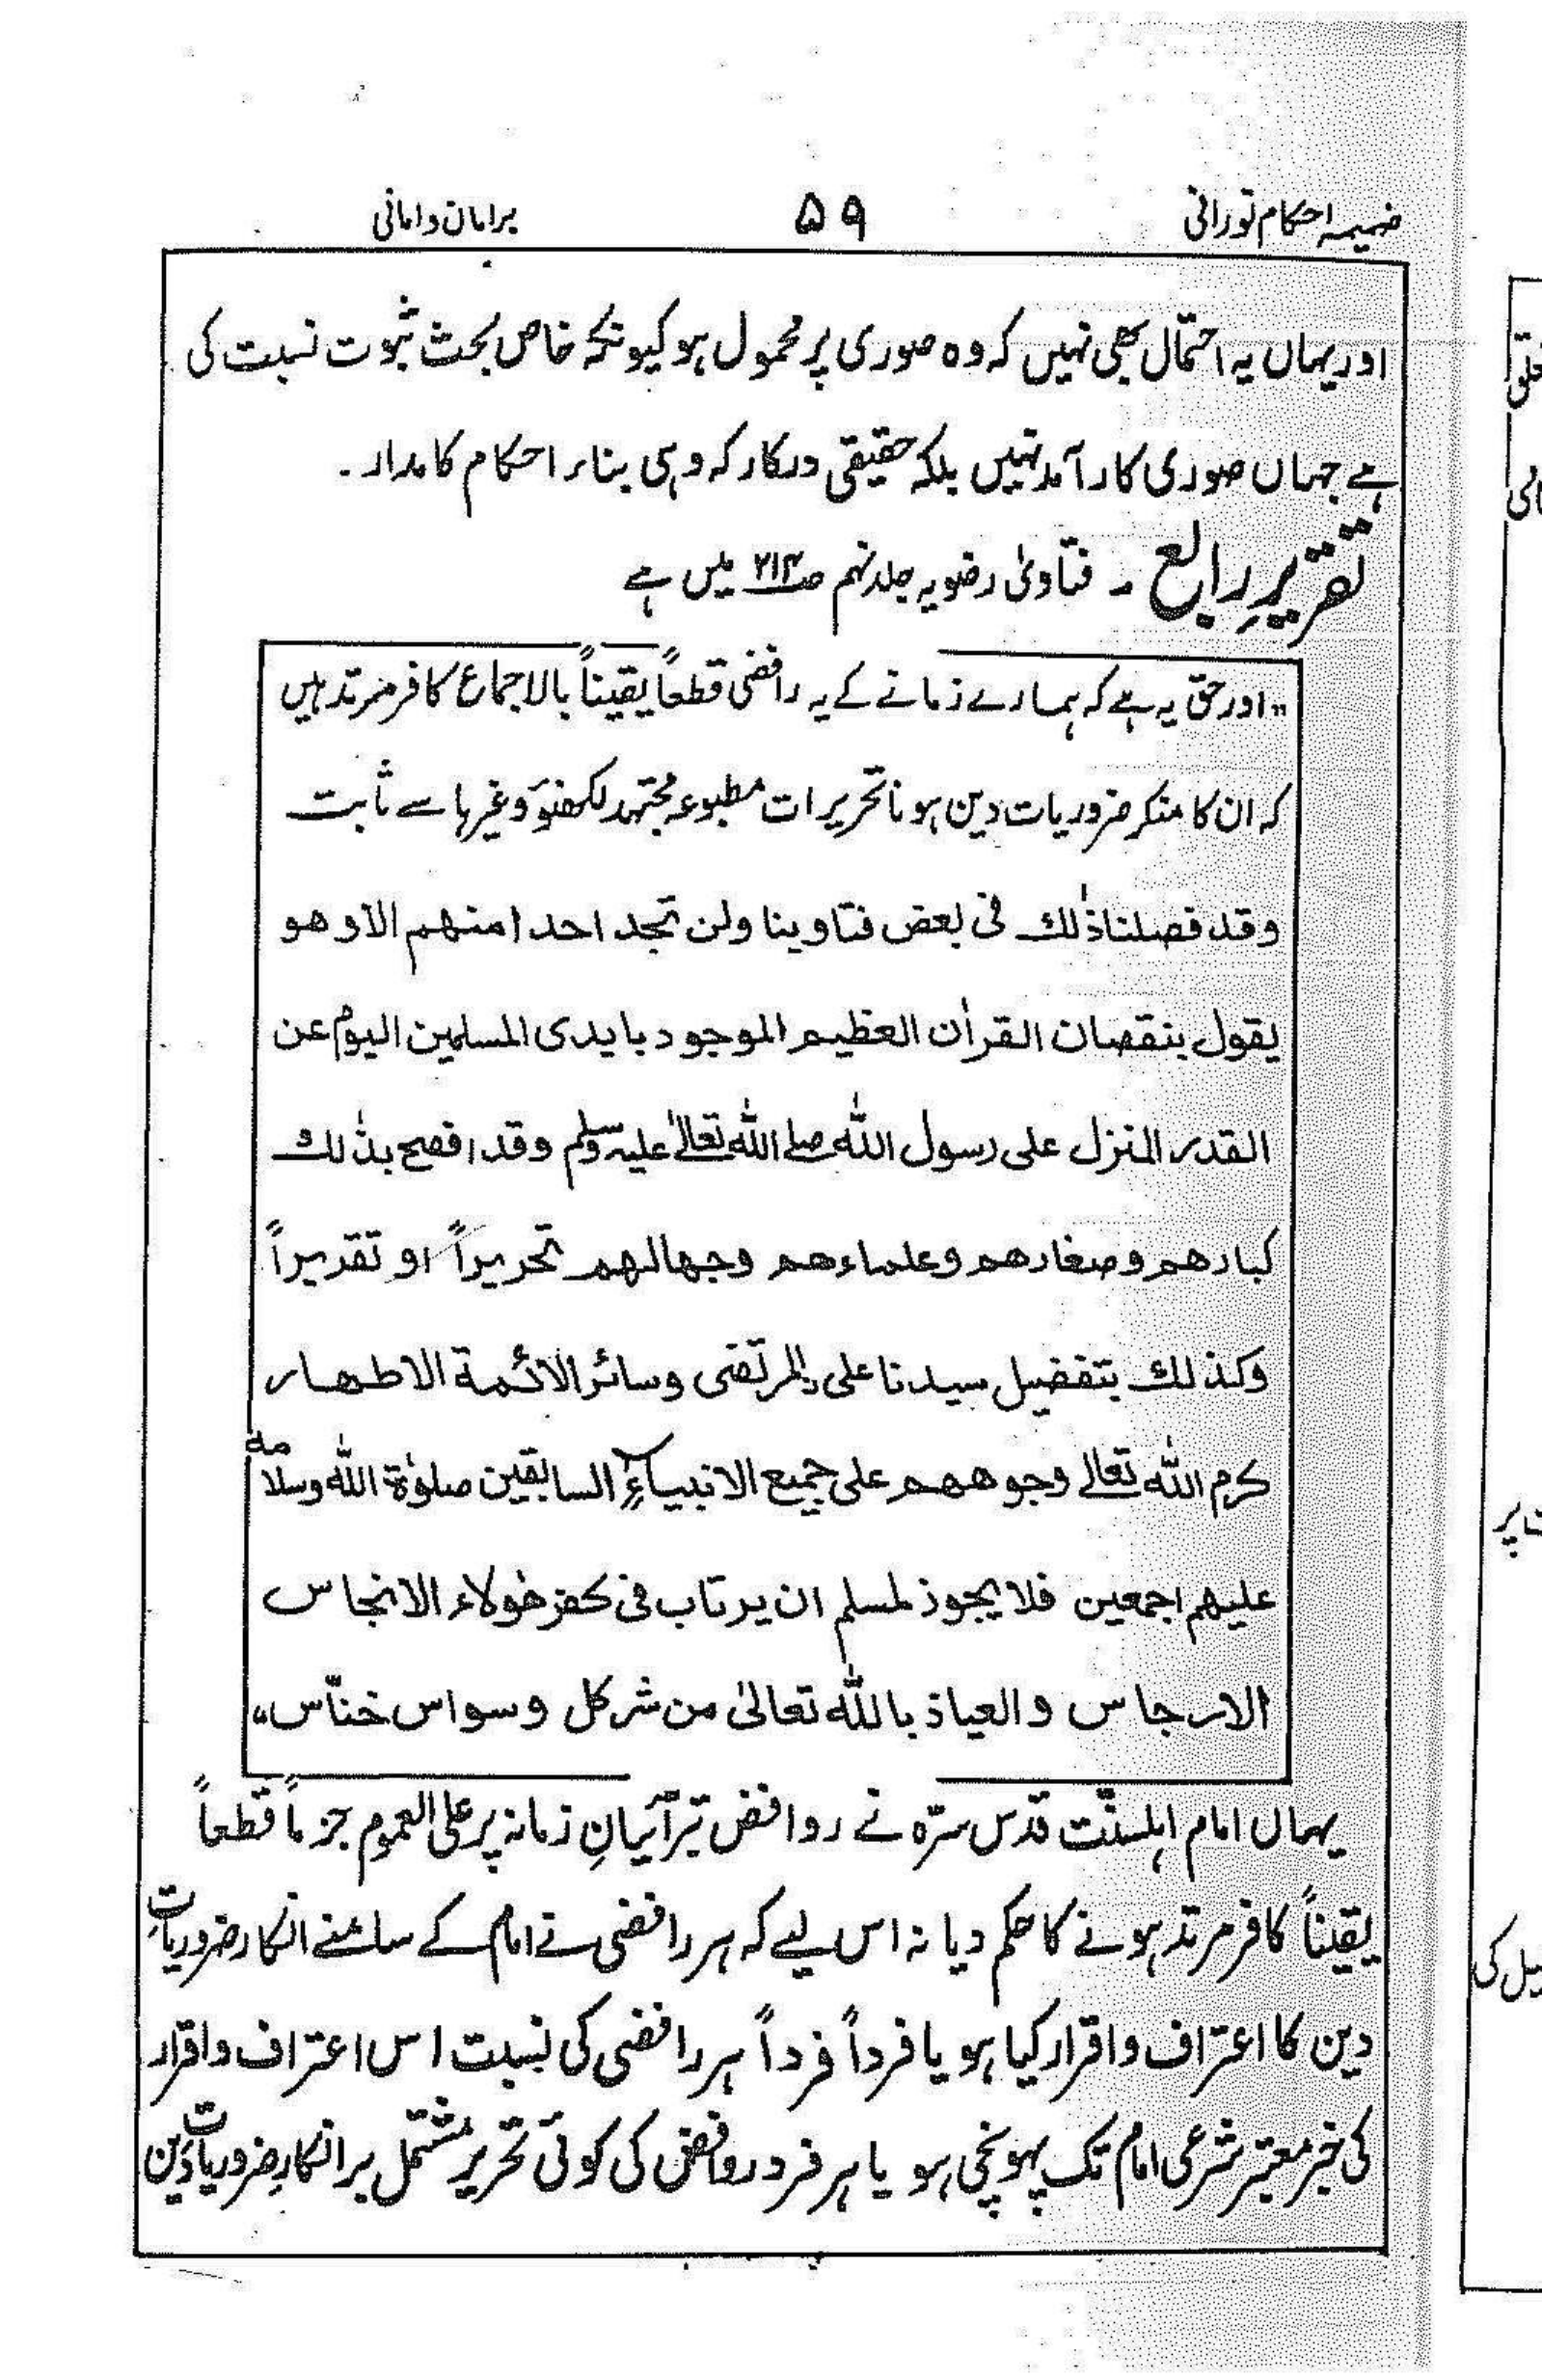 ضمیمہ احکام نورانی ۵۹ برامان دامانی
اور یہاں یہ احتمال بھی نہیں کہ وہ صوری پر محمول ہو کیونکہ خاص بحث ثبوت نسبت کی
ہے جہاں صوری کار آمد نہیں بلکہ حقیقی درکار کہ وہی بناء احکام کا مدار ۔
تقریرِ رابع ۔ فتاویٰ رضویہ جلد نہم صـ۲۱۴ میں ہے
,, اور حق یہ ہے کہ ہمارے زمانے کے یہ رافضی قطعاً یقیناً بالاجماع کافر مرتد ہیں
کہ ان کا منکر ضروریات دین ہونا تحریرات مطبوعہ مجتہد لکھنؤ وغیرہا سے ثابت
وقد فصلنا ذٰلك فی بعض فتاوینا ولن تجد احدا منهم الا و هو
یقول بنقصان القراٰن العظیم الموجود بایدی المسلمین الیوم عن
القدر المنزل علی رسول اللّٰہ صلے اللّٰہ تعالےٰ علیہ وسلم وقد افصح بذٰلك
كبارهم وصغارهم وعلماءهم وجهالهم تحریراً او تقدیراً
وكذلك بتفضیل سیدنا علی المرتضی وسائر الائمة الاطهار
كرم اللّٰہ تعالے وجوههم علی جمیع الانبیاءِ السابقین صلوٰة اللّٰہ وسلامہ
علیهم اجمعین فلا یجوز لمسلم ان یرتاب فی كفر هٰولاء الانجاس
الارجاس والعیاذ باللّٰہ تعالیٰ من شر كل وسواس خنّاس،،
یہاں امام اہلسنّت قدّس سرّہ نے روافض تبرّائیانِ زمانہ پر علی العموم جزماً قطعاً
یقیناً کافر مرتد ہونے کا حکم دیا نہ اس لیے کہ ہر رافضی نے امام کے سامنے انکار ضروریاتِ
دین کا اعتراف واقرار کیا ہو یا فرداً فرداً ہر رافضی کی نسبت اس اعتراف واقرار
کی خبر معتبر شرعی امام تک پہونچی ہو یا ہر فرد روافض کی کوئی تحریر مشتمل بر انکارِ ضروریات دین